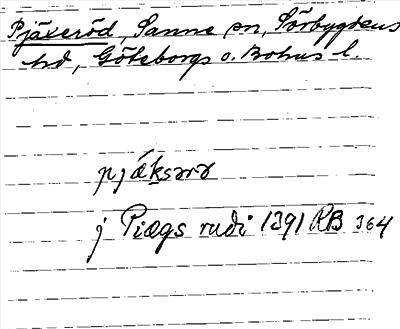 Pjäxeröd, Sanne sn, Sörbygdens
hd, Göteborgs o. Bohus l.
pjäksərö
j Piægs ruði 1391 RB 364